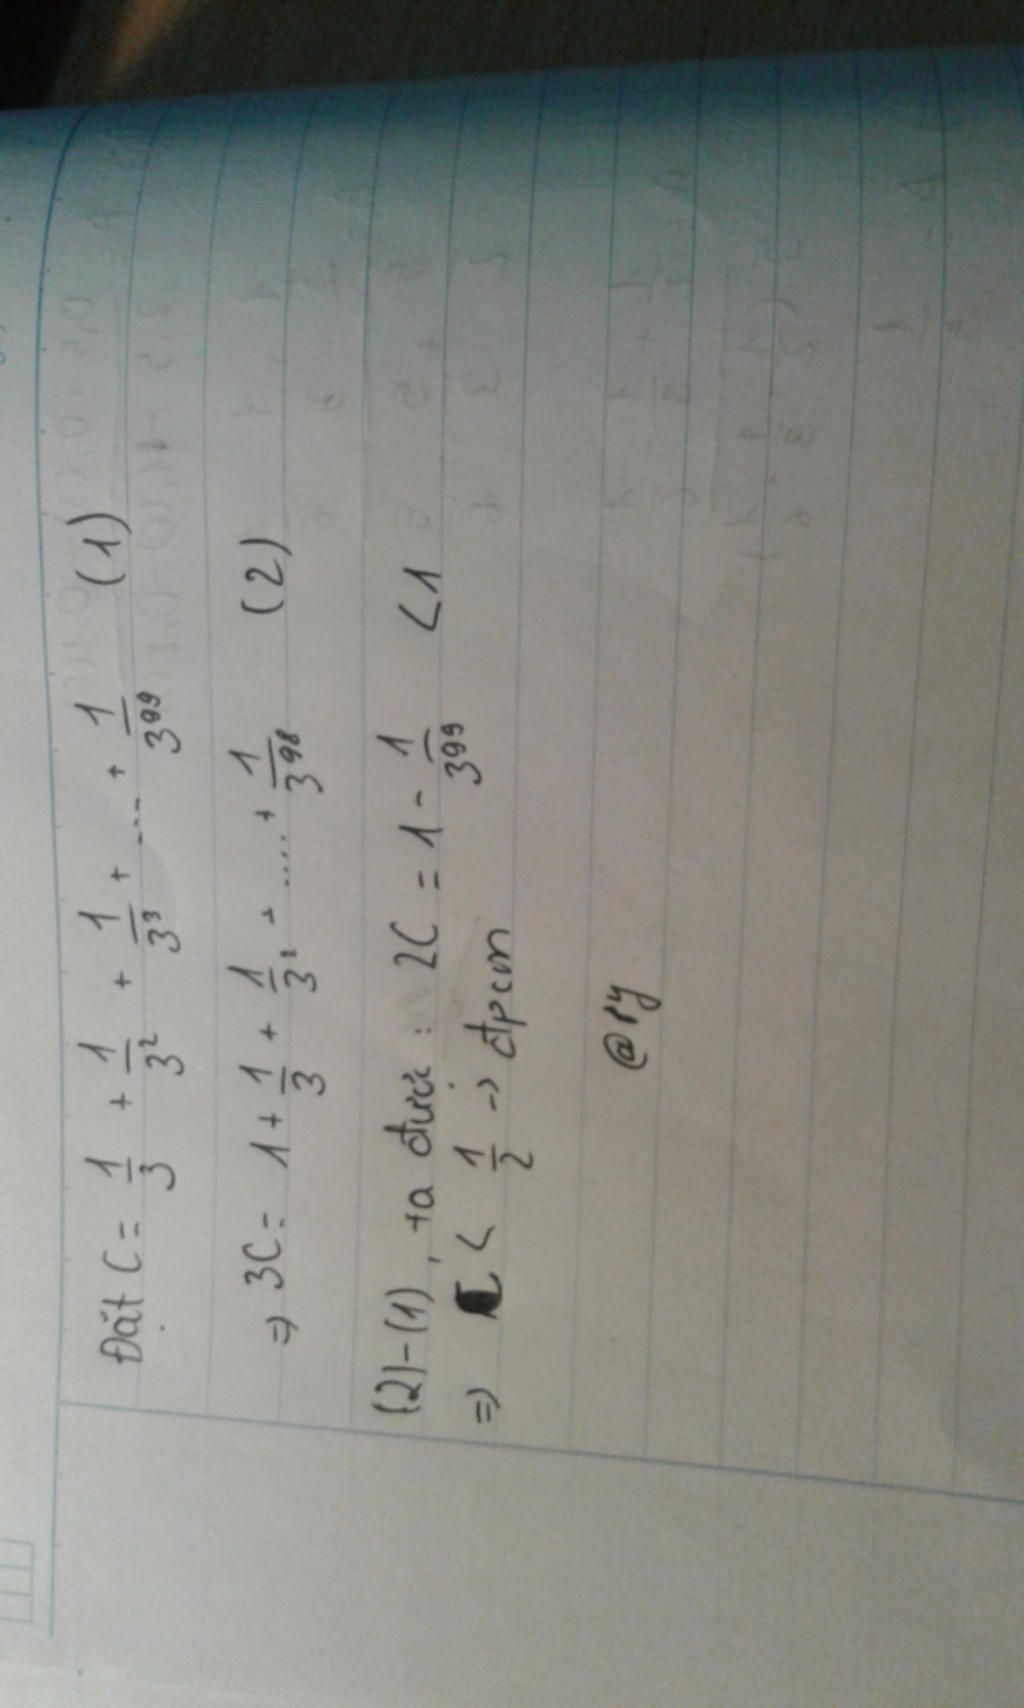 Đặt C = 1/3 + 1/3² + 1/3³ + .... + 1/3⁹⁹ (1)
=> 3C = 1 + 1/3 + 1/3² + ..... + 1/3⁹⁸ (2)
(2)-(1), ta được : 2C = 1 - 1/3⁹⁹ < 1
=> C < 1/2 -> đpcm
@ry